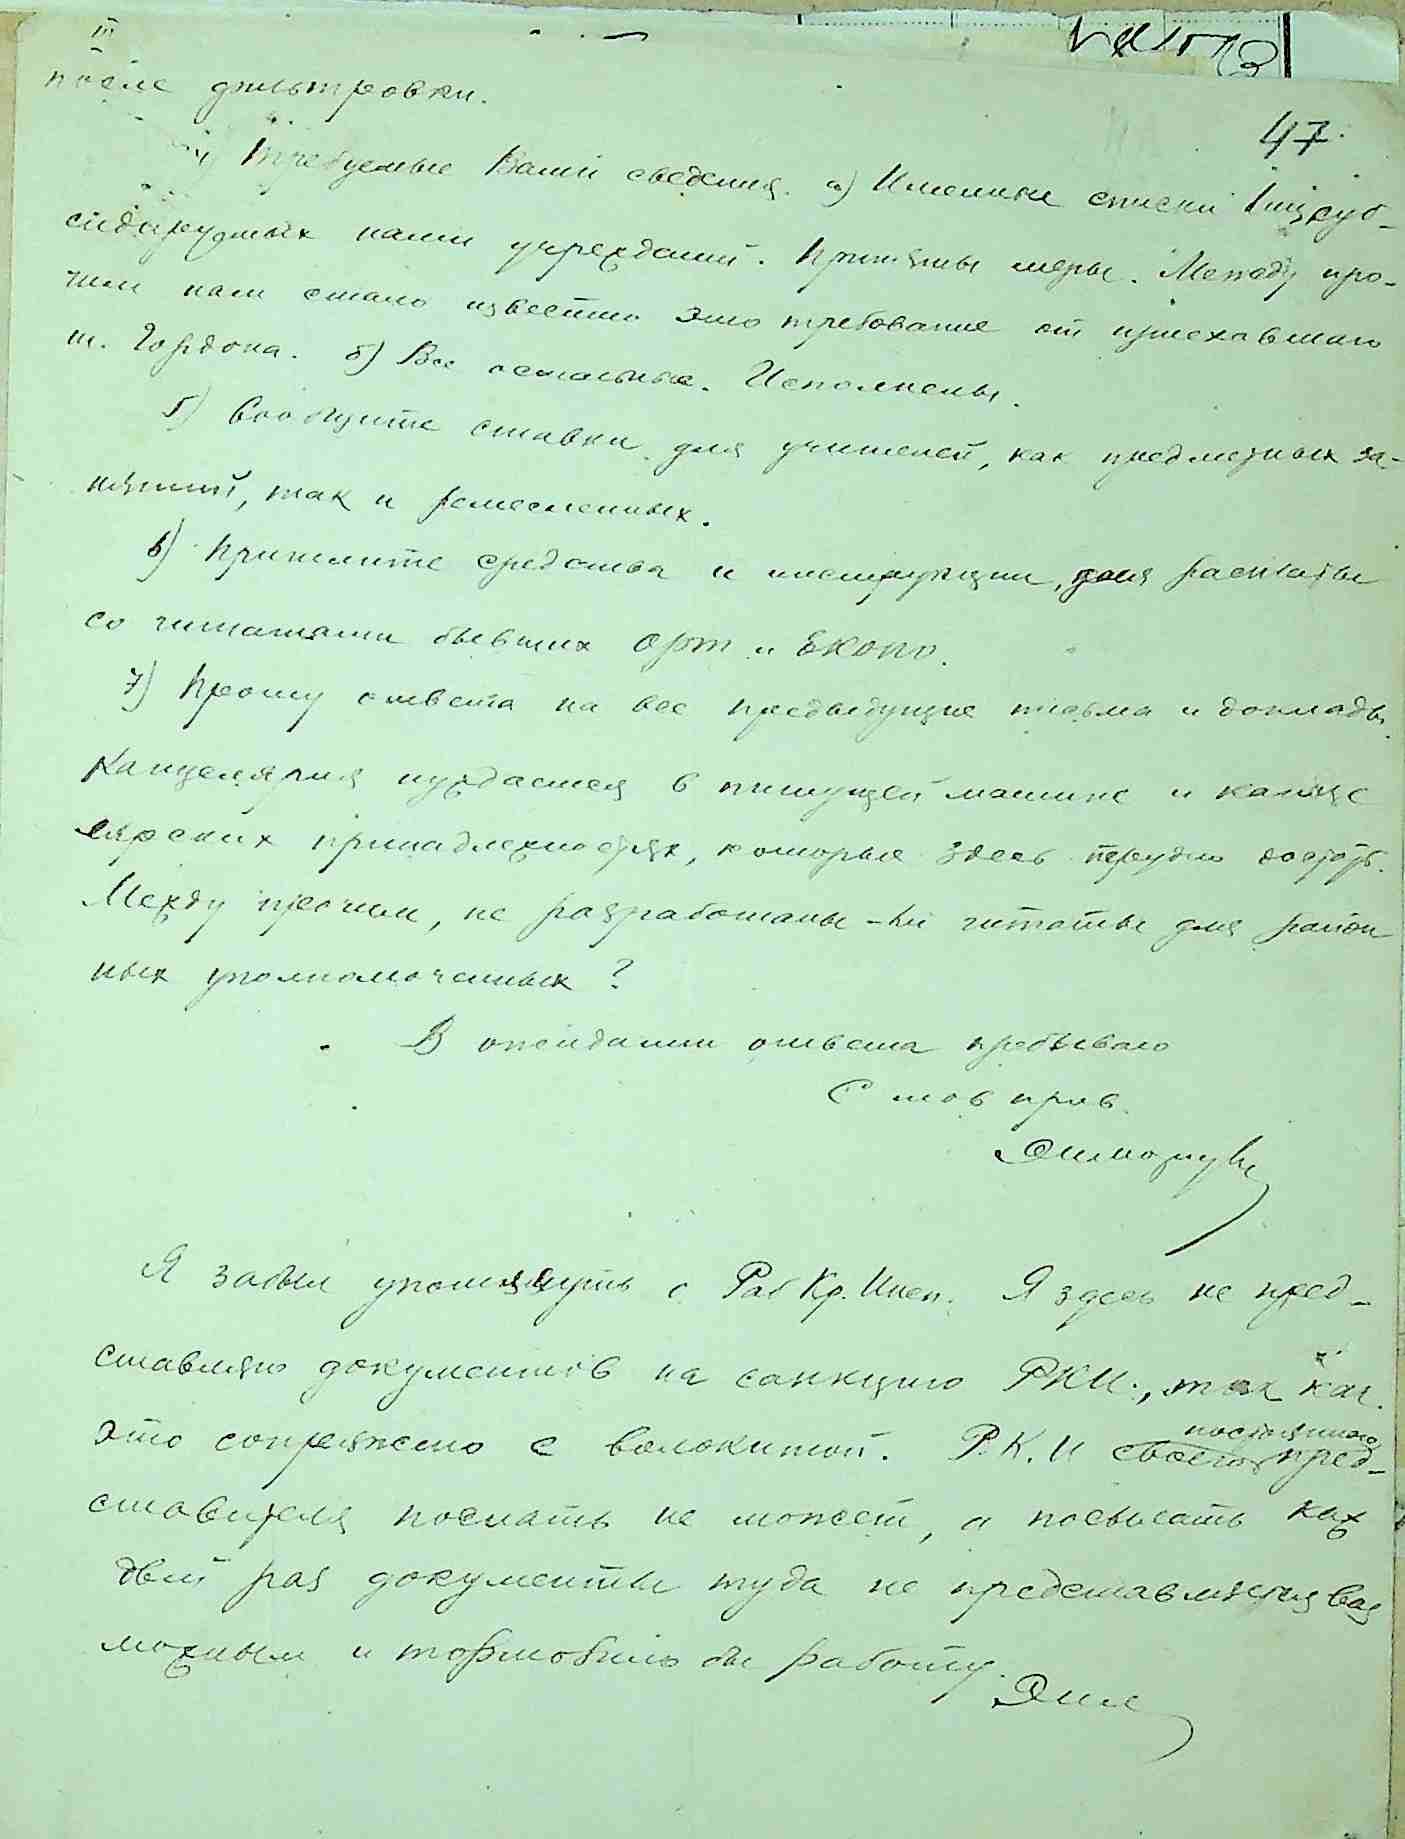 III
после фильтровки.
47.
4) Требуемые Вами сведения. а) Именные списки суб-
сидируемых нами учреждений. Приняты меры. Между про-
чим нам стало известно это требование от приехавшаго
т. Гордона. б) Все остальные. Исполнены.
5) Сообщите ставки для учителей, как предметных за-
нятий, так и ремесленных.
6) Пришлите средства и инструкции, для расплаты
со штатами бывших Орт и Екопо.
7) Прошу ответа на все предыдущие письма и доклады.
Канцелярия нуждается в пишущей машине и канце
лярских принадлежностях, которые здесь трудно достать.
Между прочим, не разработаны-ли штаты для район
ных уполномоченных?
В ожидании ответа пребываю
С тов прив.
Я забыл упомянуть о Раб Кр. Инсп. Я здесь не пред-
ставляю документов на санкцию РКИ., так как
это сопряжено с волокитой. Р.К.И своего постоянного пред-
ставителя послать не может, а посылать каж
дый раз документы туда не представляется воз
можным и тормобило бы работу.